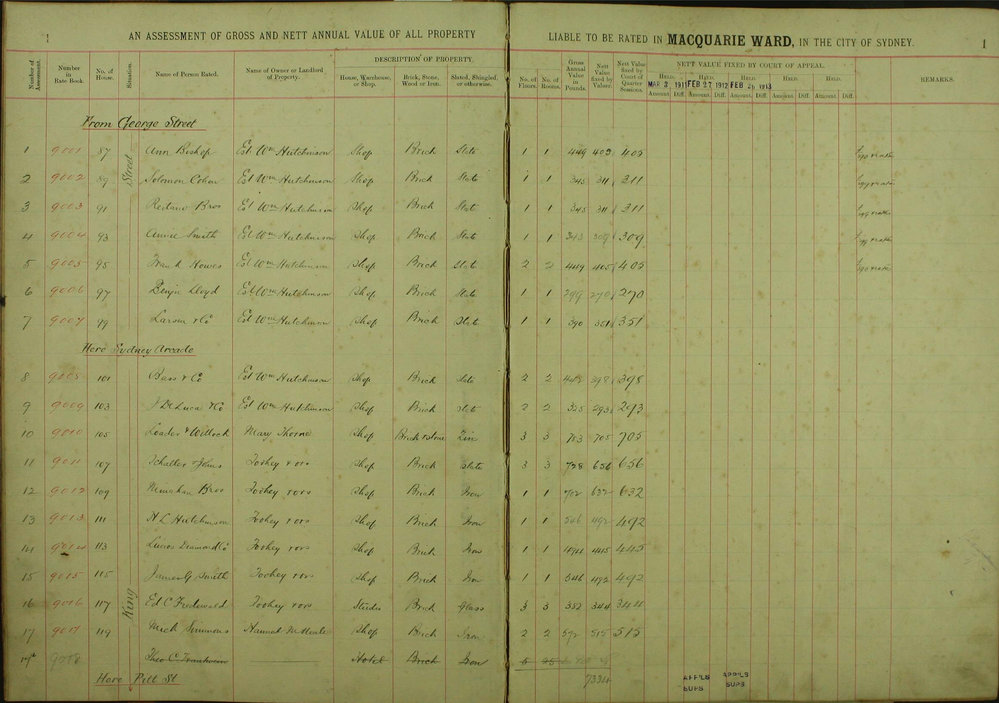 1 AN ASSESSMENT OF GROSS AND NETT ANNUAL VALUE OF ALL PROPERTY LIABLE TO BE RATED IN MACQUARIE WARD, IN THE CITY OF SYDNEY. 1
Number of Assessment. Number in Rate Book. No. of House. Situation. Name of Person Rated. Name of Owner or Landlord of Property. DESCRIPTION OF PROPERTY. House, Warehouse, or Shop. Brick, Stone, Wood or Iron. Slated, Shingled, or otherwise. No. of Floors. No. of Rooms. Gross Annual Value in Pounds. Nett Value fixed by Valuer. Nett Value fixed by Court of Quarter Sessions. NETT VALUE FIXED BY COURT OF APPEAL. REMARKS.
HELD. HELD. HELD. HELD. HELD.
1911 FEB 27 1912 FEB
Amount. Diff. Amount. Diff. Amount. Diff. Amount. Diff. Amount. Diff.
From George Street
1 9001 87 Street Ann Bishop Est Wm Hutchinson Shop Brick Slate 1 1 449 405
2 9002 89 Solomon Cohen Est Wm Hutchinson Shop Brick Slate 1 1 345 311 311
3 9003 91 Bros Est Wm Hutchinson Shop Brick Slate 1 1 345 311 311
4 9004 93 Annie Smith Est Wm Hutchinson Shop Brick Slate 1 1 343 309 309
5 9005 95 Frank Howes Est Wm Hutchinson Shop Brick Slate 2 2 449 405 405
6 9006 97 Benjn Lloyd Est Wm Hutchinson Shop Brick Slate 1 1 299 270 270
7 9007 99 Larsen & Co Est Wm Hutchinson Shop Brick Slate 1 1 390 351 351
Here Sydney Arcade
8 9008 101 Bass & Co Est Wm Hutchinson Shop Brick Slate 2 2 398 398
9 9009 103 J De Luca & Co Est Wm Hutchinson Shop Brick Slate 2 2 325 293 293
10 9010 105 Loader & Willock Mary Thorne Shop Brick & Stone Zinc 3 3 783 705 705
11 9011 107 Toohey & ors Shop Brick Slate 3 3 728 656 656
12 9012 109 Bros Toohey & ors Shop Brick Iron 1 1 702 632 632
13 9013 111 H L Hutchinson Toohey & ors Shop Brick Iron 1 1 546 492 492
14 9014 113 Diamond Co Toohey & ors Shop Brick Iron 1 1 494 445 445
15 9015 115 James G Smith Toohey & ors Shop Brick Iron 1 1 546 492 492
16 9016 117 King Ed C Toohey & ors Studio Brick Glass 3 3 382 344 344
17 9017 119 Mick Simmons Hannah Shop Brick Iron 2 2 572 515 515
9018 Theo C Trautwein Hotel Brick Iron
Here Pitt St 7334
APP'LS SUPS APP'LS SUPS